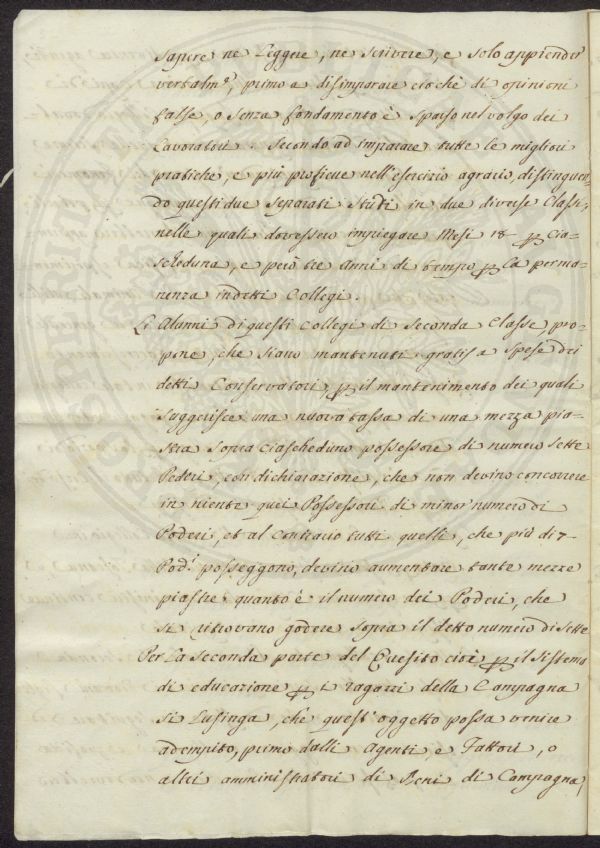 sapere ne Leggere, ne scrivere, e solo apprender
verbalm.e, primo a disimparare ciochè di opinioni
false, o senza fondamento è sparso nel volgo dei
Lavoratori. Secondo ad imparare tutte le migliori
pratiche, e più proficue nell'esercizio agrario, distinguen-
do questi due separati studi in due diverse Classi,
nelle quali dovessero impiegare Mesi 18 p cia-
scheduna, e però tre anni di tempo p la perma-
nenza in detti Collegi.
Li Alunni di questi Collegi di seconda Classe, pro-
pone, che siano mantenuti gratis a spese dei
detti Conservatori, p il mantenimento dei quali
suggerisce una nuova tassa di una mezza pia-
stra sopra ciascheduno possessore di numero sette
Poderi, con dichiarazione, che non devino concorrere
in niente quei Possessori di minor numero di
Poderi, et al contrario tutti quelli, che più di 7
Pod.i posseggono, devino aumentare tante mezze
piastre quanto è il numero dei Poderi, che
si ritrovano godere sopra il detto numero di sette
Per La seconda parte del Quesito cioè p il sistema
di educazione p i ragazzi della Campagna
si Lusinga, che quest'oggetto possa venire
adempito, primo dalli Agenti, e Fattori, o
altri amministratori di Beni di Campagna,